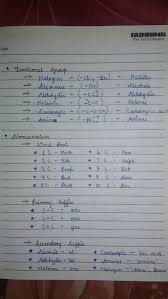 GUHRING
The Tool Company
Functional Group
Halogens - (-Cl, -Br) - Halides
Alcoholic - (-OH) - Alcohols
Aldehydic - - Aldehydes
Ketonic - - Ketones
Carboxylic - - Carboxylic acid
Amines - - Amines
Nomenclature
Word Root
1 C - Meth 6 C - Hex
2 C - Eth 7 C - Hept
3 C - Prop 8 C - Oct
4 C - But 9 C - Non
5 C - Pent 10 C - Dec
Primary Suffix
C-C - ane
C=C - ene
C≡C - yne
Secondary Suffix
Alcohols - ol Carboxylic - oic acid
Aldehydes - al Amines - amine
Ketones - one Halogens